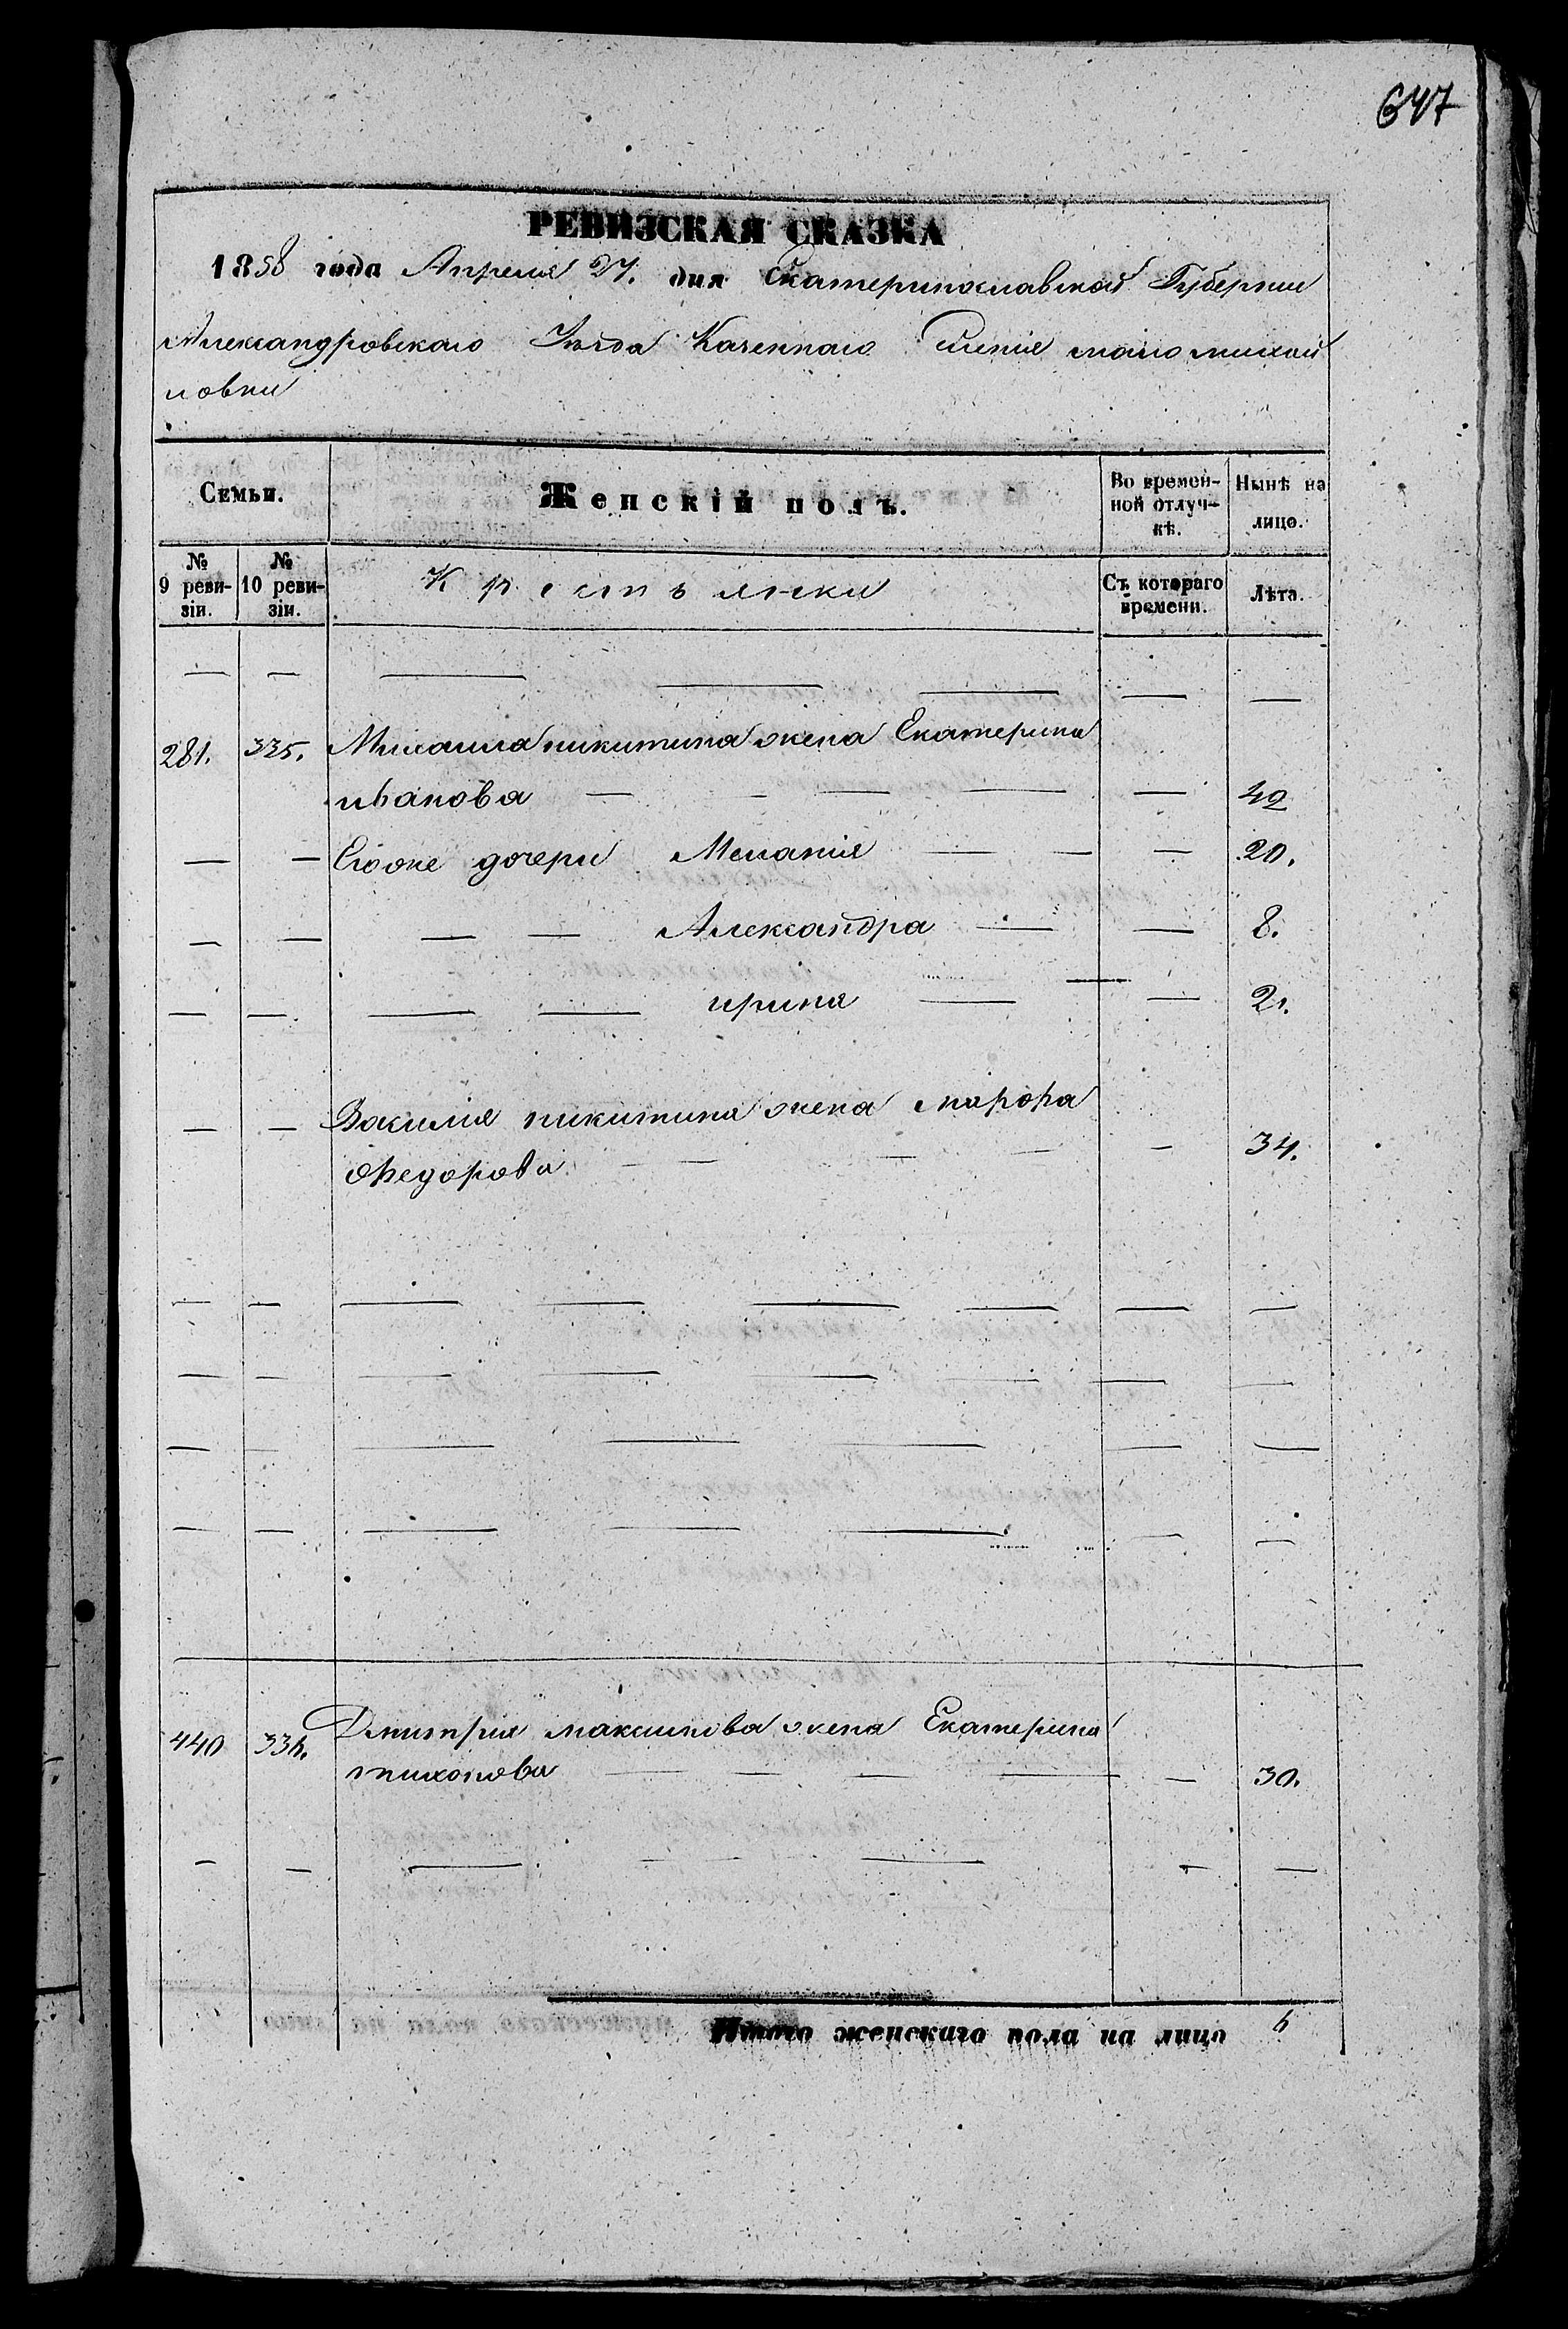 647
РЕВИЗСКАЯ СКАЗКА
1858 года Апреля 27. дня Екатеринославской Губернии
Александровскаго Уезда Казеннаго Селения мало михай
ловки
Семьи. Женскій полъ. Во времен-ной отлуч-кѣ. Нынѣ на лицо.
№ 9 реви-зіи. № 10 реви-зіи. Крестьянки Съ котораго времени. Лѣта.
281. 335. Михаила никитина жена Екатерина
иванова — — — — — 42
— — Егоже дочери Мелания — — — 20.
— — — — Александра — — 8.
— — — — ирина — — 2.
— — Василия никитина жена марфа
Федорова — — — — — 34.
440 336. Дмитрия максимова жена Екатерина
тихонова — — — — — 30.
Итого женскаго пола на лицо 6